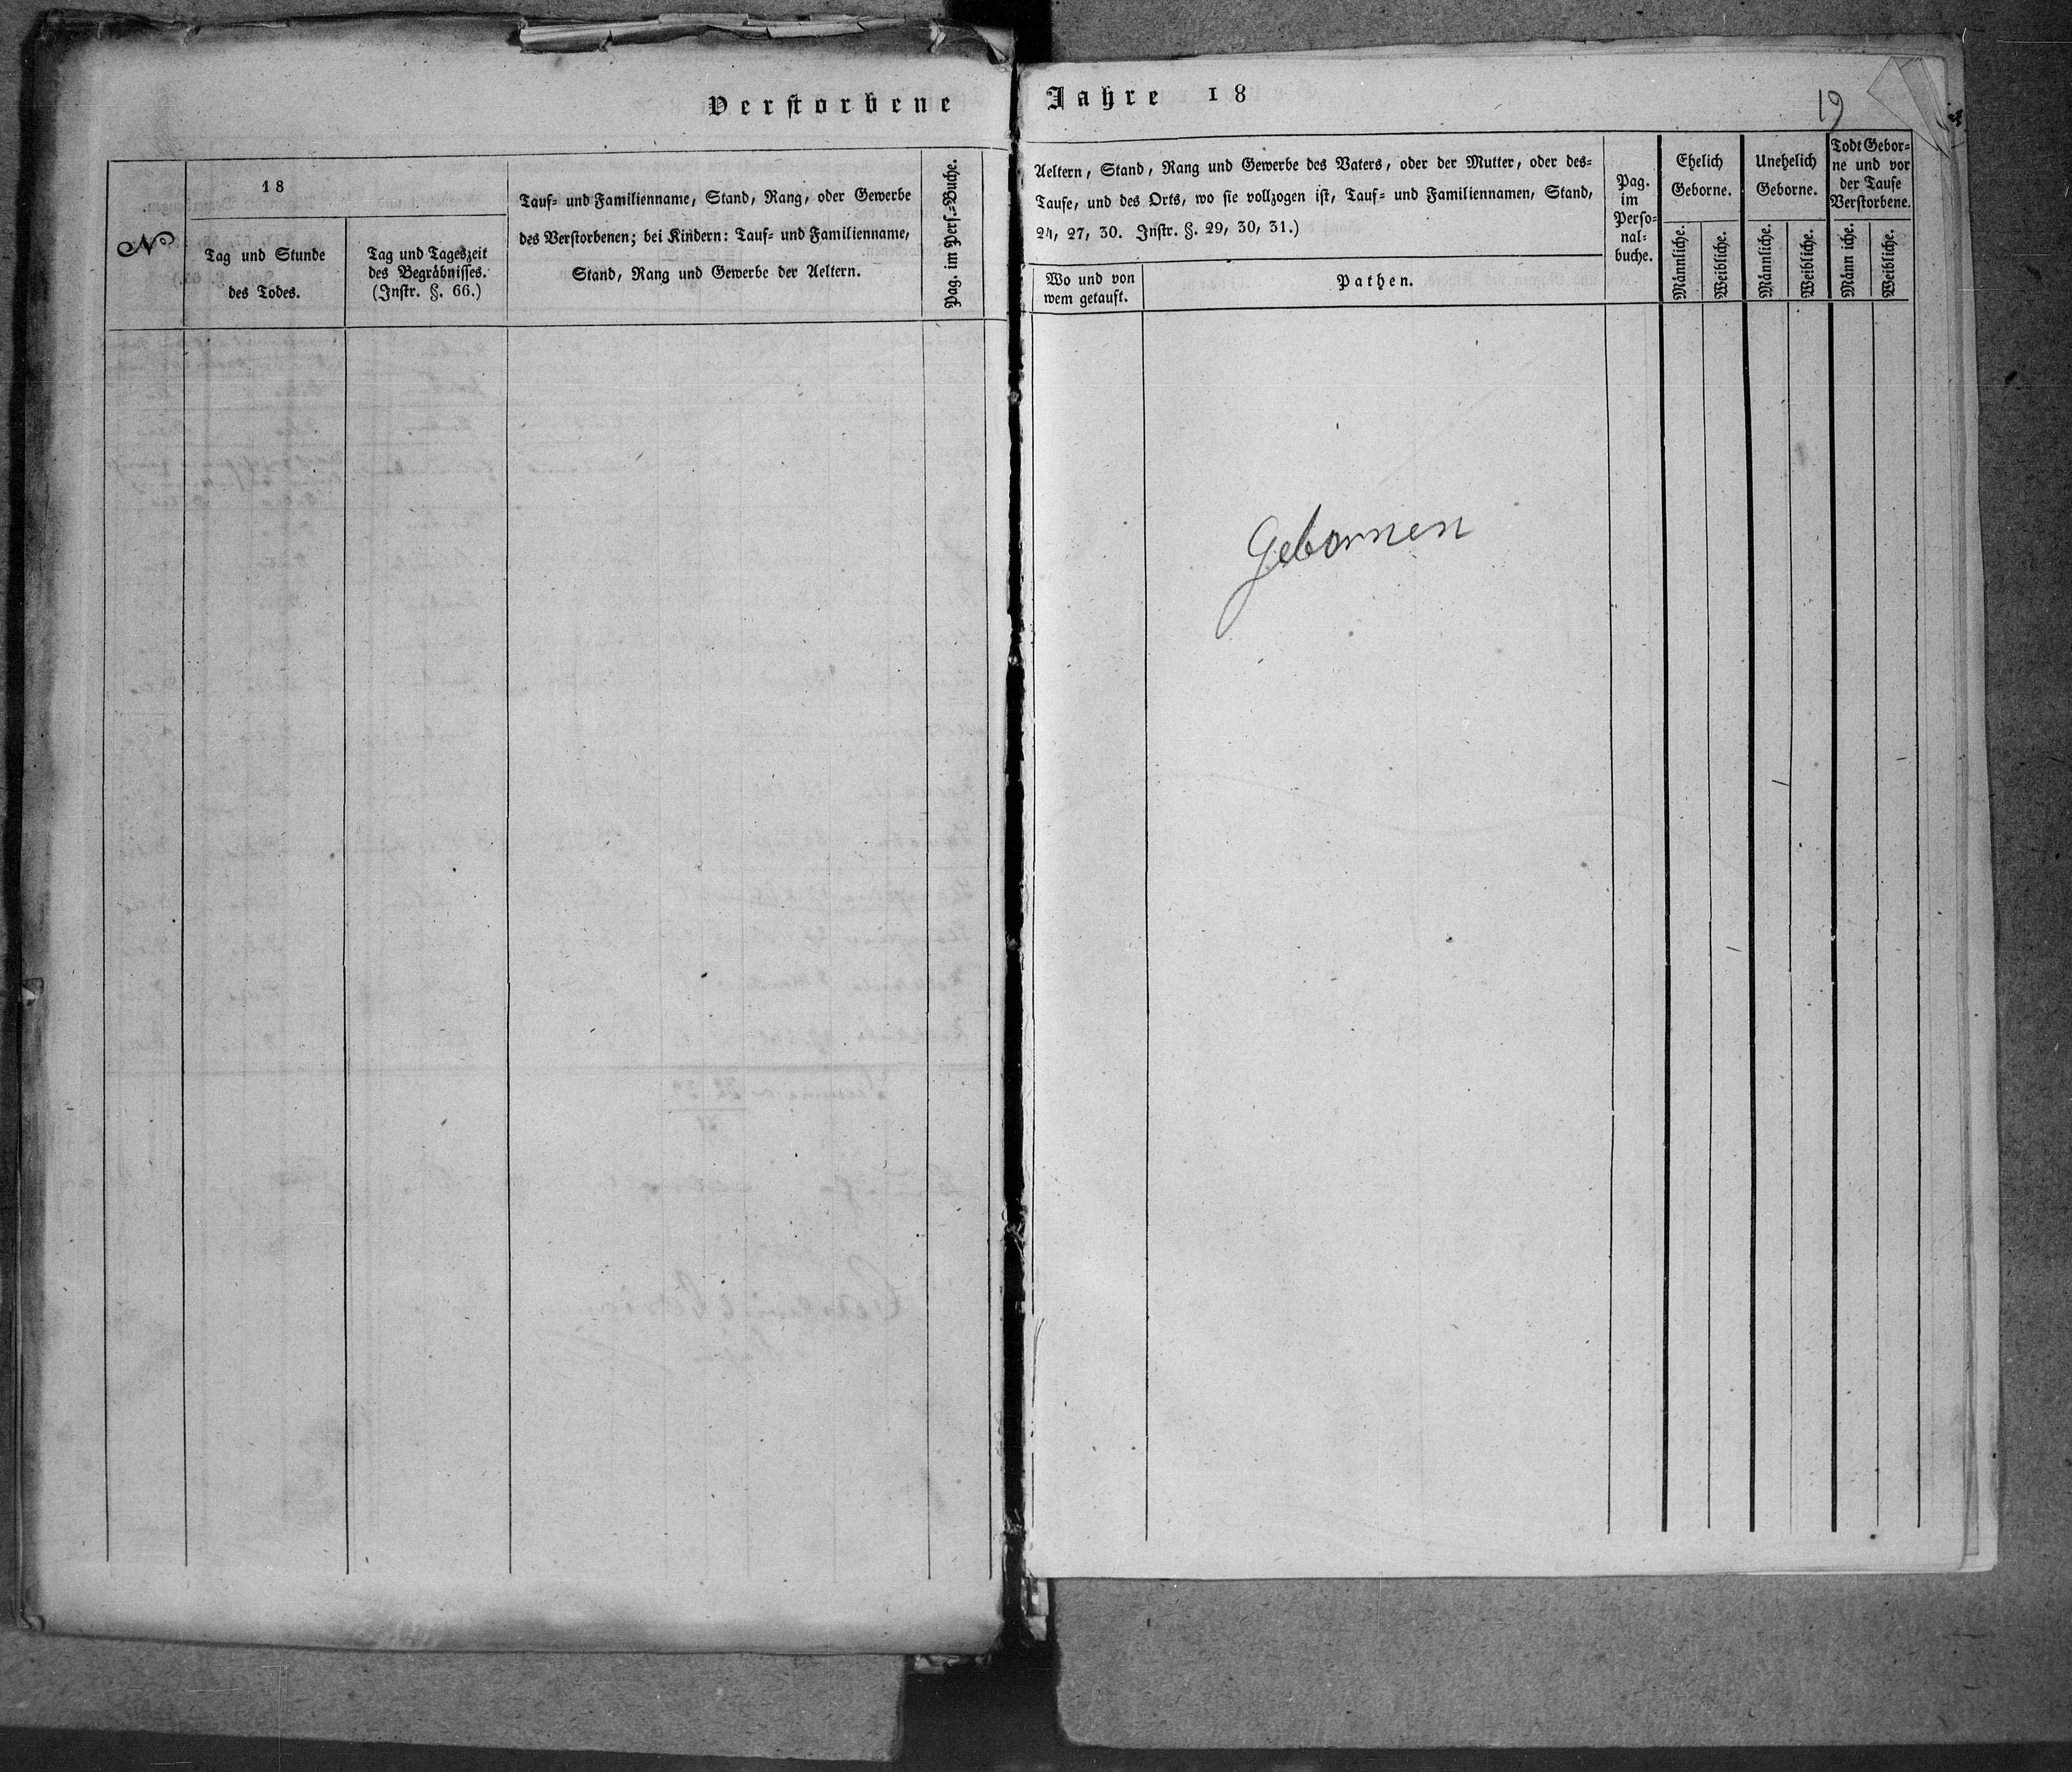 Verstorbene
№
18
Tag und Stunde
des Todes.
Tag und Tageszeit
des Begräbnisses.
(Instr. §. 66.)
Tauf= und Familienname, Stand, Rang, oder Gewerbe
des Verstorbenen; bei Kindern: Tauf= und Familienname,
Stand, Rang und Gewerbe der Aeltern.
Pag. im Pers.=Buche.
Jahre 18
19
Aeltern, Stand, Rang und Gewerbe des Vaters, oder der Mutter, oder des=
Taufe, und des Orts, wo sie vollzogen ist, Tauf= und Familiennamen, Stand,
24, 27, 30. Instr. §. 29, 30, 31.)
Wo und von
wem getauft.
Pathen.
Pag.
im
Perso=
nal=
buche.
Ehelich
Geborne.
Männliche.
Weibliche.
Unehelich
Geborne.
Männliche.
Weibliche.
Todt Gebor=
ne und vor
der Taufe
Verstorbene.
Männ iche.
Weibliche.
Gebornen